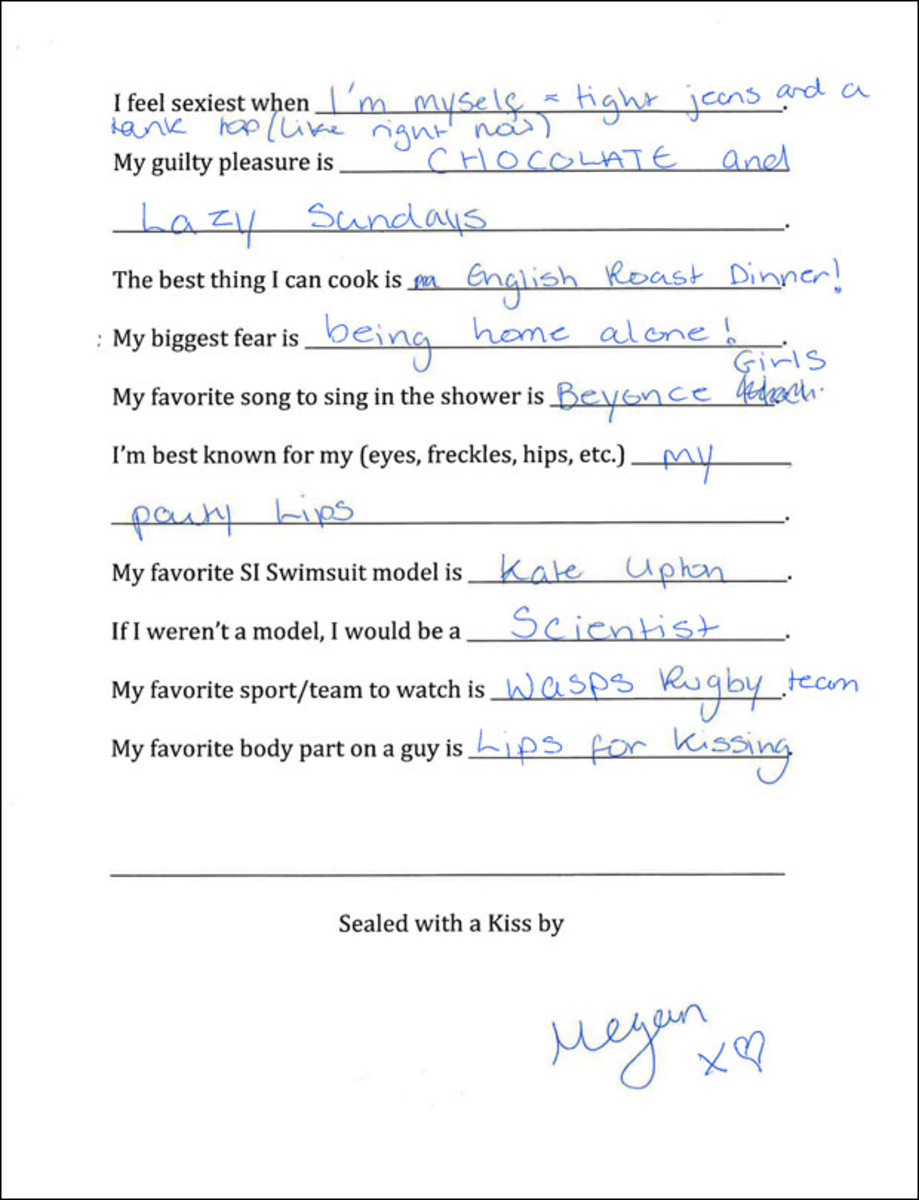 I feel sexiest when I'm myself = tight jeans and a
tank top (like right now)
My guilty pleasure is CHOCOLATE and
Lazy Sundays.
The best thing I can cook is English Roast Dinner!
: My biggest fear is being home alone!
Girls
My favorite song to sing in the shower is Beyonce
I'm best known for my (eyes, freckles, hips, etc.) my
pouty Lips.
My favorite SI Swimsuit model is Kate Upton.
If I weren't a model, I would be a Scientist.
My favorite sport/team to watch is Wasps Rugby team
My favorite body part on a guy is Lips for Kissing.
Sealed with a Kiss by
Megan
X♡